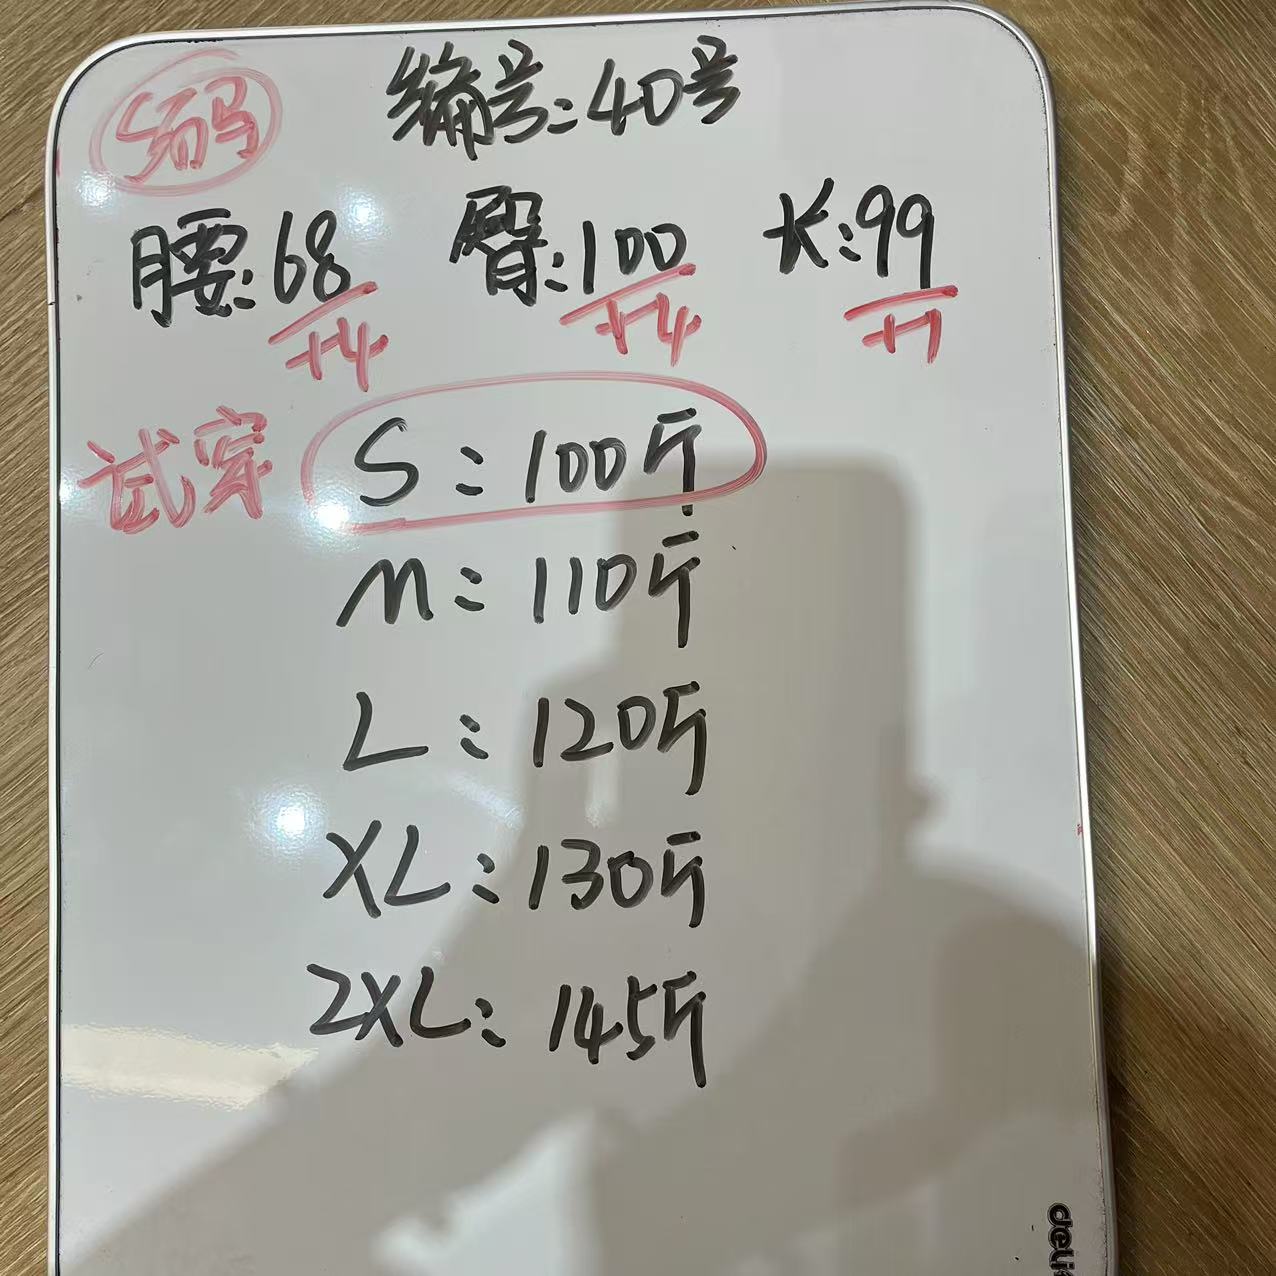 S码 编号:40号
腰:68 臀:100 长:99
+4 +4 +1
试穿 S:100斤
M:110斤
L:120斤
XL:130斤
2XL:145斤
deli